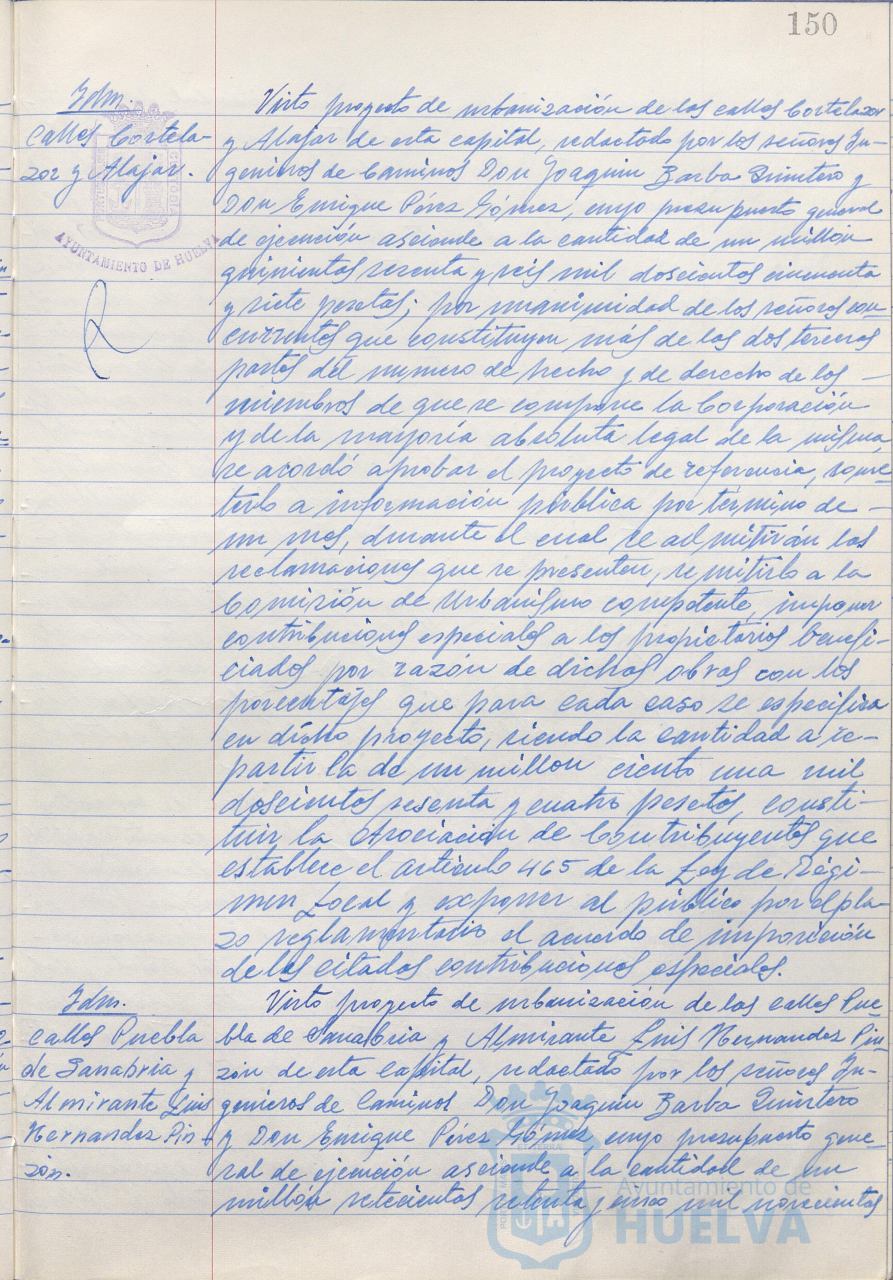 150
Idm.
Calles Cortela-
zor y Alajar.
AYUNTAMIENTO DE HUELVA
Visto proyecto de urbanización de las calles Cortelazor
y Alajar de esta capital, redactado por los señores In-
genieros de Caminos Don Joaquin Barba Quintero y
Don Enrique Pérez Gómez, cuyo presupuesto general
de ejecución asciende a la cantidad de un millón
quinientas sesenta y seis mil doscientas cincuenta
y siete pesetas; por unanimidad de los señores con-
currentes que constituyen más de las dos terceras
partes del numero de hecho y de derecho de los -
miembros de que se compone la Corporación
y de la mayoría absoluta legal de la misma,
se acordó aprobar el proyecto de referencia, some-
terlo a información pública por término de -
un mes, durante el cual se admitirán las
reclamaciones que se presenten, remitirlo a la
Comisión de Urbanismo competente, imponer
contribuciones especiales a los propietarios benefi-
ciados por razón de dichas obras con los
porcentajes que para cada caso se especifica
en dicho proyecto, siendo la cantidad a re-
partir la de un millon ciento una mil
doscientas sesenta y cuatro pesetas, consti-
tuir la Asociación de Contribuyentes que
establece el artículo 465 de la Ley de Régi-
men Local y exponer al público por el pla-
zo reglamentario el acuerdo de imposición
de las citadas contribuciones especiales.
Idm.
Calles Puebla
de Sanabria y
Almirante Luis
Hernandez Pin-
zón.
Visto proyecto de urbanización de las calles Pue-
bla de Sanabria y Almirante Luis Hernandez Pin-
zón de esta Capital, redactado por los señores In-
genieros de Caminos Don Joaquin Barba Quintero
y Don Enrique Pérez Gómez, cuyo presupuesto gene-
ral de ejecución asciende a la cantidad de un
millon setecientas setenta y cinco mil novecientas
Ayuntamiento de
HUELVA